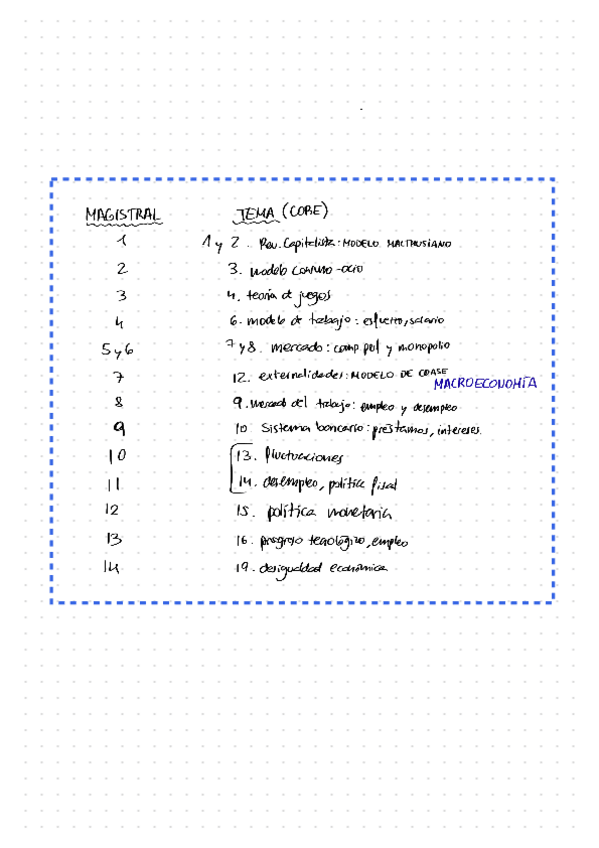 MAGISTRAL TEMA (CORE)
1 1 y 2. Rev. Capitalista: MODELO MALTHUSIANO
2 3. modelo consumo-ocio
3 4. teoría de juegos
4 6. modelo de trabajo: esfuerzo, salario
5 y 6 7 y 8. mercado: comp perf y monopolio
7 12. externalidades: MODELO DE COASE
MACROECONOMÍA
8 9. mercado del trabajo: empleo y desempleo
9 10 Sistema bancario: préstamos, intereses.
10 13. fluctuaciones
11 14. desempleo, política fiscal
12 15. política monetaria
13 16. progreso tecnológico, empleo
14 19. desigualdad económica